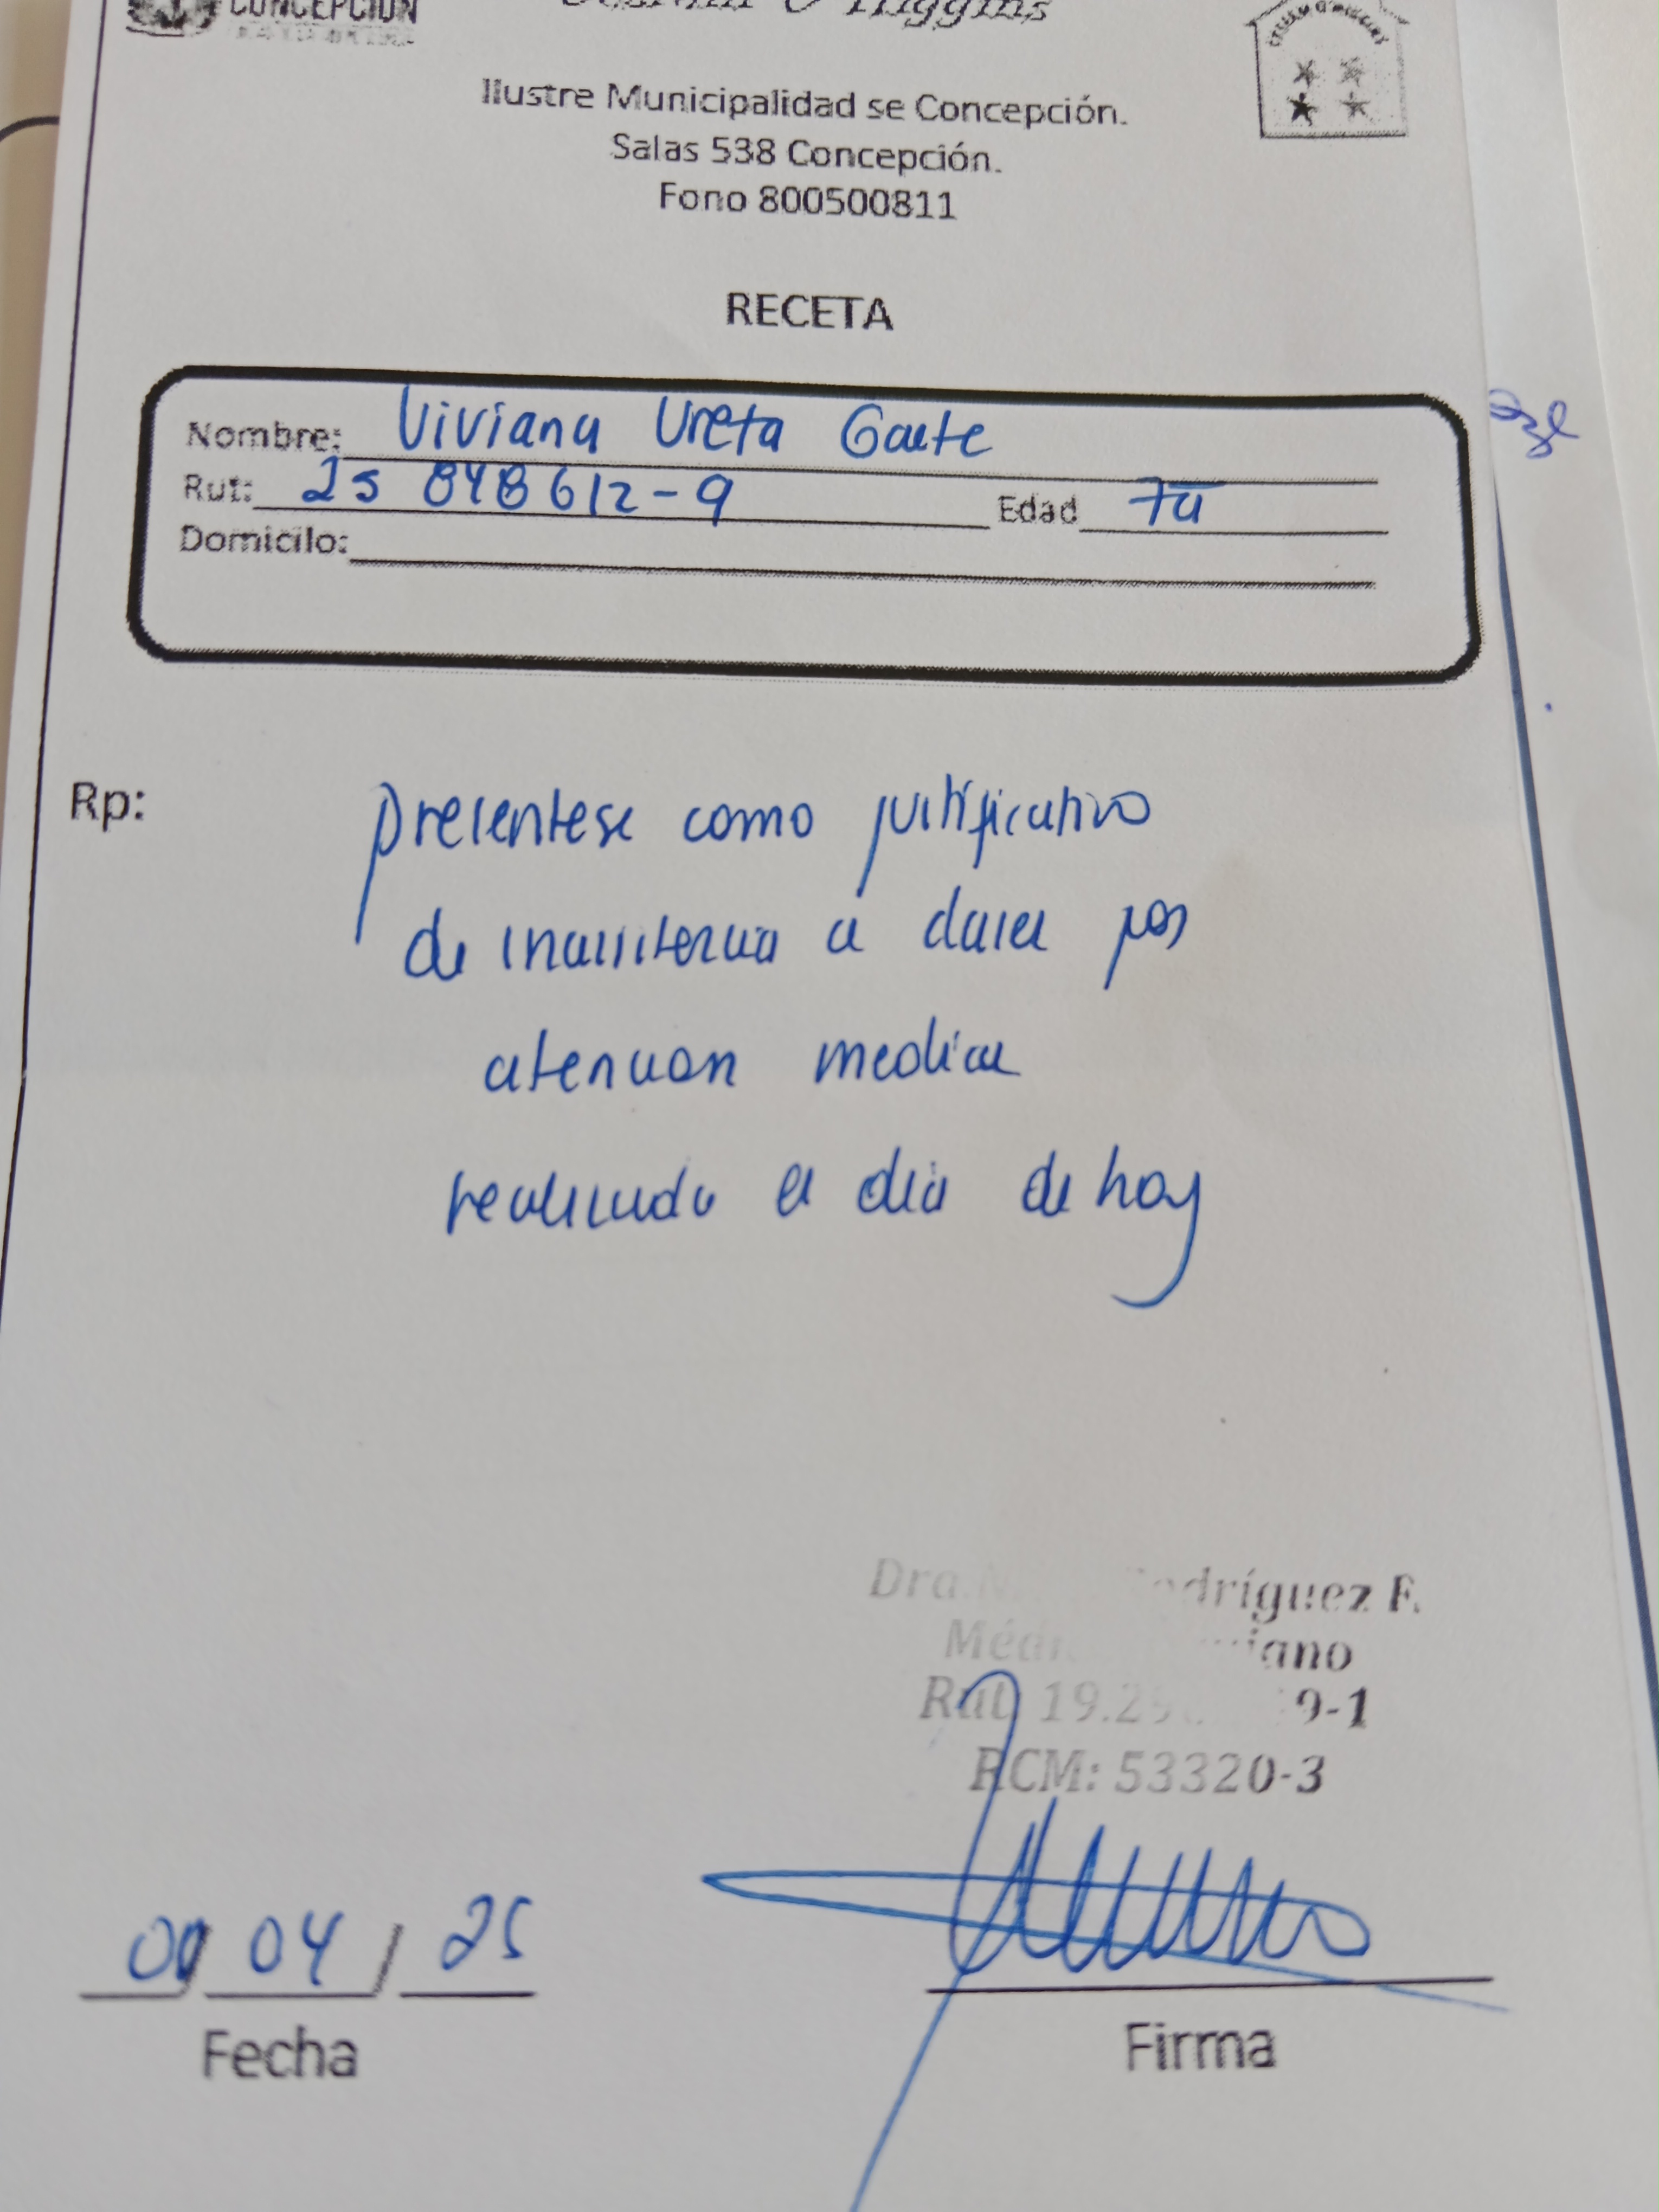 CONCEPCIÓN
O'Higgins
CESFAM O'HIGGINS
Ilustre Municipalidad se Concepción.
Salas 538 Concepción.
Fono 800500811
RECETA
Nombre: Viviana Ureta Gaete
Rut: 25 848612-9 Edad 7a
Domicilo:
Rp: presentese como justificativo
de inasistencia a clases por
atencion medica
realizada el dia de hoy
Dra. Rodríguez F.
Rut 19.2 9-1
RCM: 53320-3
04 / 25
Fecha
Firma